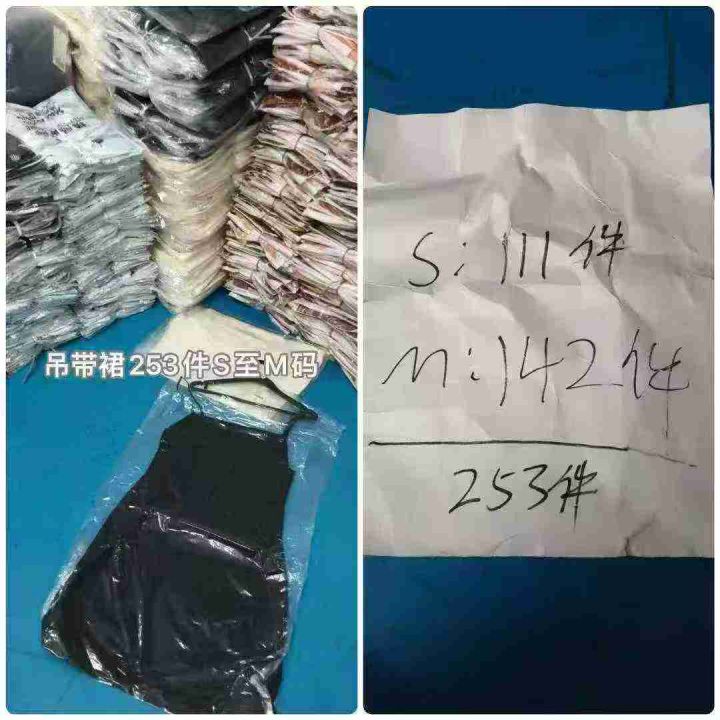 吊带裙253件S至M码
S:111件
M:142件
253件